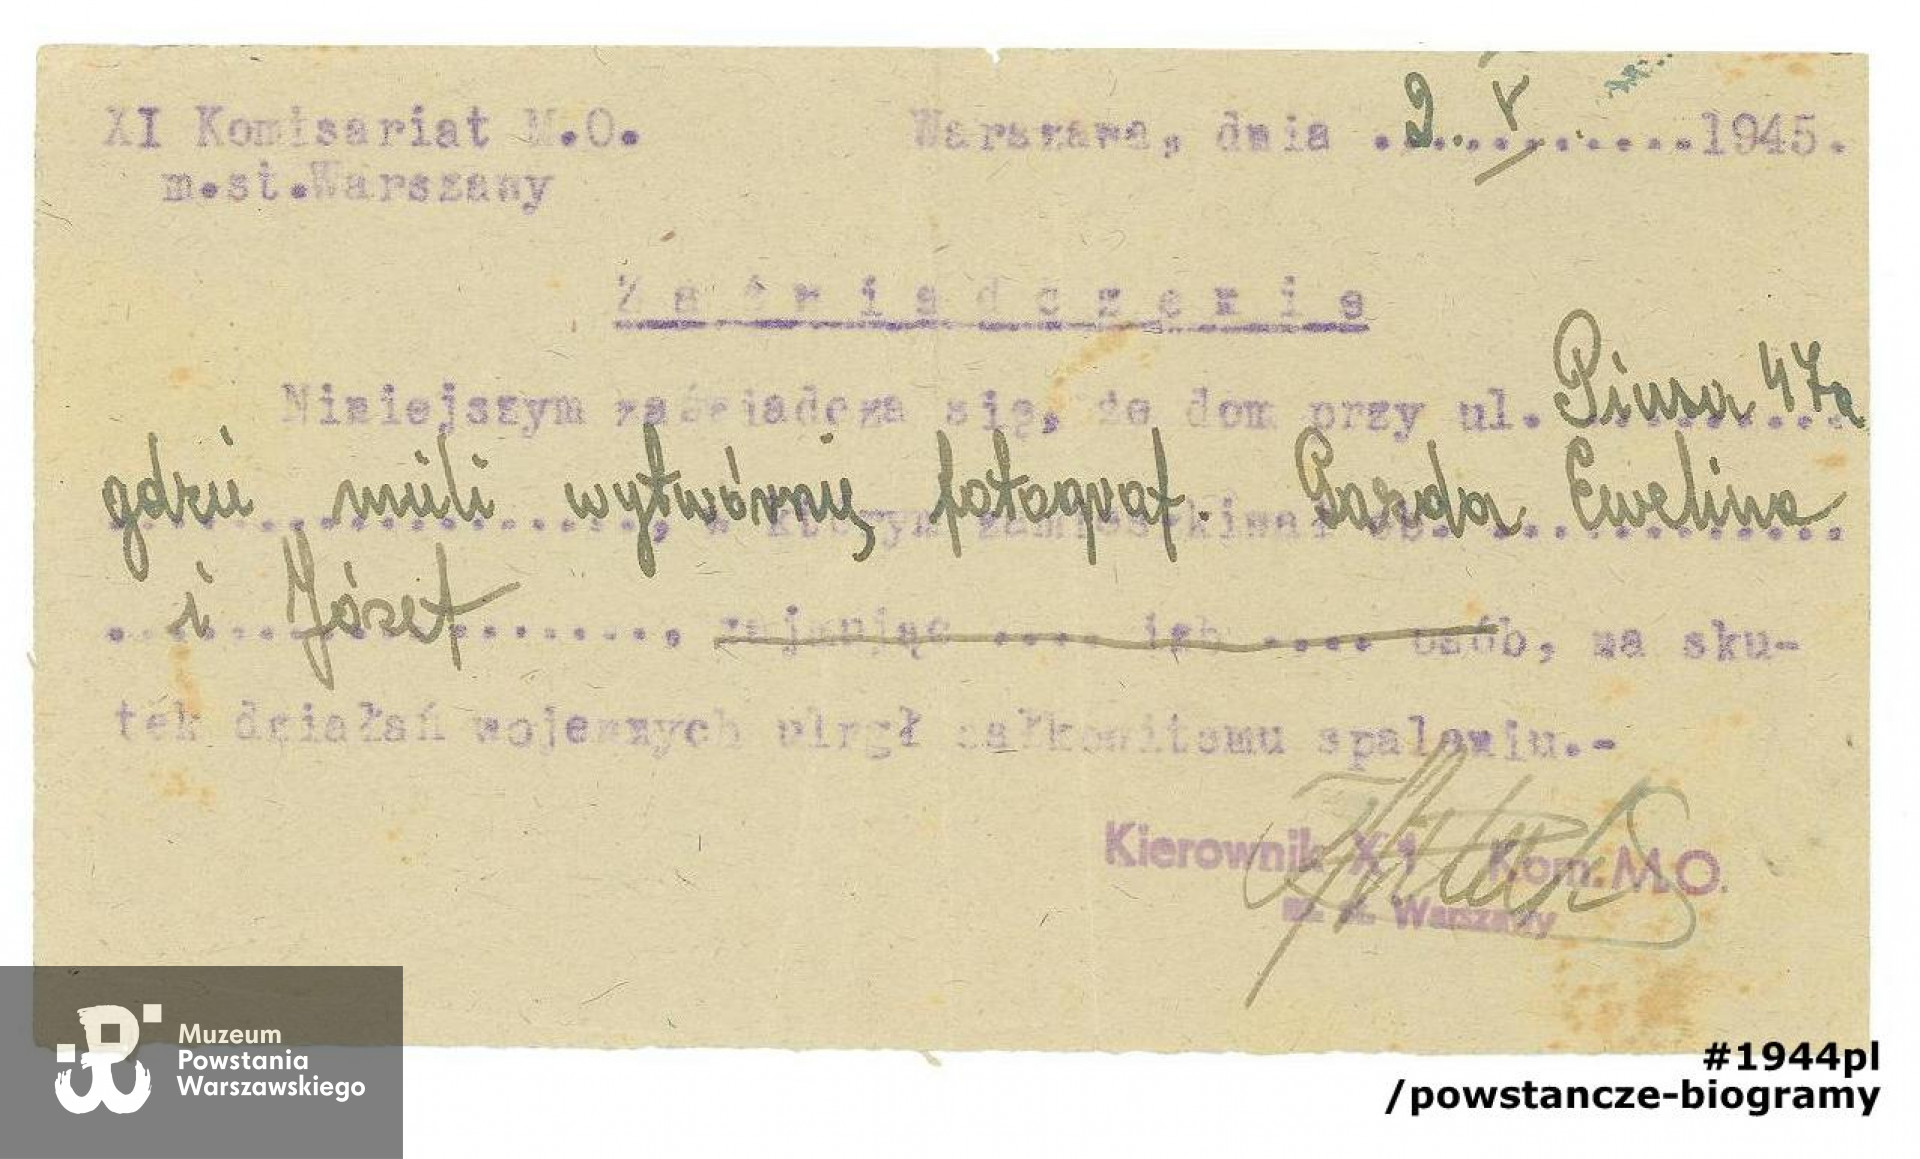 XI Komisariat M.O. Warszawa, dnia 9. V 1945.
m.st.Warszawy
Zaświadczenie
Niniejszym zaświadcza się, że dom przy ul. Piusa 47a
gdzie mieli wytwórnię fotograf. Garda Ewelina
, w którym zamieszkiwał ob.
i Józef , zajmując .... izb .... osób, na sku-
tek działań wojennych uległ całkowitemu spaleniu.-
Kierownik XI Kom. M.O.
m. st. Warszawy
Muzeum
Powstania
Warszawskiego
#1944pl
/powstancze-biogramy